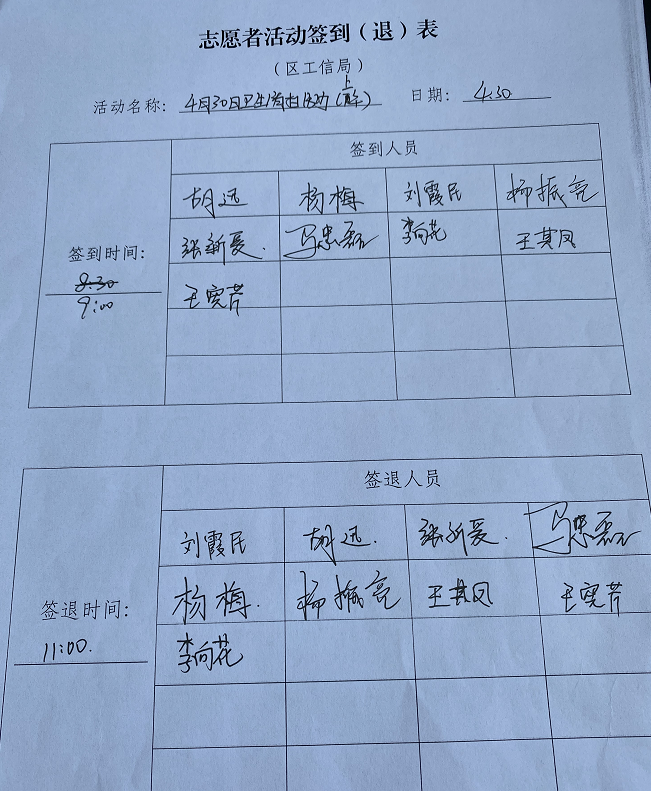 志愿者活动签到（退）表
（区工信局）
活动名称：4月30日卫生清扫活动（上午） 日期：4.30
签到人员
胡迅 杨梅 刘霞民 杨振亮
签到时间：
张新爱. 马忠磊 李向花 王其凤
8:30
9:00
王宪芹
签退人员
刘霞民 胡迅. 张新爱. 马忠磊
签退时间：
杨梅. 杨振亮 王其凤 王宪芹
11:00.
李向花